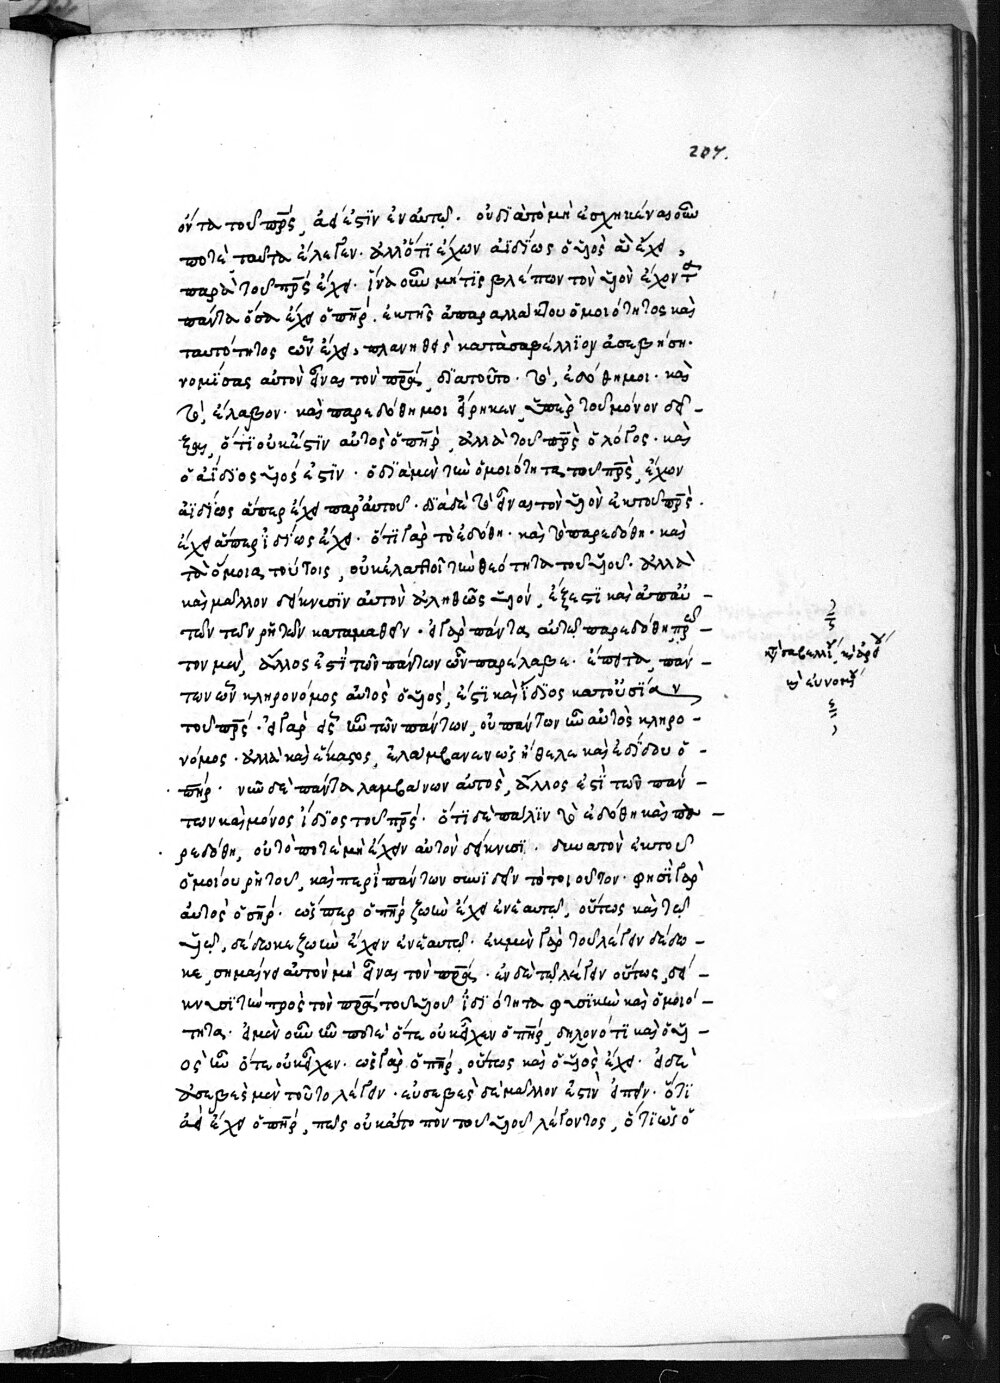 207.
όντα τοῦ πρς, ἀεί ἐστϊν ἐν αυτῷ. οὐ διὰ τὸ μὴ ἐσχηκέναι οὖν
ποτὲ ταῦτα ἔλεγεν. ἀλλ' ὅτϊ ἔχων ἀϊδίως ὁ υἱὸς ἃ ἔχει,
παρὰ τοῦ πρς ἔχει. ἵνα οὖν μήτϊς βλέπων τὸν υἱὸν ἔχοντα
πάντα ὅσα ἔχει ὁ πηρ, ἐκ τῆς ἀπαραλλάκτου ὁμοιότητος καὶ
ταυτότητος ὧν ἔχει, πλανηθεὶς κατὰ σαβέλλϊον ἀσεβήση.
νομίσας αὐτὸν εἶναι τὸν πρα, διατοῦτο. τὸ, ἐδόθη μοι. καὶ
τὸ, ἔλαβον. καὶ παρεδόθη μοι εἴρηκεν, ὑπὲρ τοῦ μόνον δεῖ-
ξαι, ὅτϊ οὐκ ἔστϊν αὐτὸς ὁ πηρ, ἀλλὰ τοῦ πρς ὁ λόγος. καὶ
ὁ ἀΐδϊος υἱός ἐστϊν. ὁ διὰ μὲν τὴν ὁμοιότητα τοῦ πρς, ἔχων
ἀϊδίως ἅπερ ἔχει παρ' αὐτοῦ. διὰ δὲ τὸ εἶναι τὸν υἱὸν ἐκ τοῦ πρς.
ἔχει ἅπερ ϊδίως ἔχει. ὅτϊ γὰρ τὸ ἐδόθη. καὶ τὸ παρεδόθη. καὶ
τὰ ὅμοια τούτοις, οὐκ ἐλαττοῖ τὴν θεότητα τοῦ υἱοῦ. ἀλλὰ
καὶ μᾶλλον δείκνυσϊν αὐτὸν ἀληθῶς υἱόν, ἔξεστϊ καὶ ἀπ' αὐ-
τῶν τῶν ρητῶν καταμαθεῖν. εἰ γὰρ πάντα αὐτῷ παρεδόθη, πρῶ-
τον μὲν, ἄλλος ἐστὶ τῶν πάντων ὧν παρέλαβε. ἔπειτα, πάν-
των ὢν κληρονόμος αὐτὸς ὁ υἱός, ἐστϊ καὶ ἴδϊος κατ' οὐσίαν
τοῦ πρς. εἰ γὰρ εἷς ἦν τῶν πάντων, οὐ πάντων ἦν αὐτὸς κληρο-
νόμος. ἀλλὰ καὶ ἕκαστος, ἐλάμβανεν ὡς ἤθελε καὶ ἐδίδου ὁ-
πηρ. νῦν δὲ πάντα λαμβάνων αὐτὸς, ἄλλος ἐστὶ τῶν πάν-
των καὶ μόνος ἴδϊος τοῦ πρς. ὅτϊ δὲ πάλϊν τὸ ἐδόθη καὶ πα-
ρεδόθη, οὐ τὸ ποτὲ μὴ ἔχειν αὐτὸν δείκνυσϊ. δυνατὸν ἐκ τοῦ
ὁμοίου ρητοῦ, καὶ περὶ πάντων συνϊδεῖν τὸ τοιοῦτον. φησὶ γὰρ
αὐτὸς ὁ σηρ. ὥσπερ ὁ πηρ ζωὴν ἔχει ἐν ἑαυτῷ, οὕτως καὶ τῷ
υἱῷ, δέδωκε ζωὴν ἔχειν ἐν ἑαυτῷ. ἐκ μὲν γὰρ τοῦ λέγειν δέδω-
κε, σημαίνει αὐτὸν μὴ εἶναι τὸν πρα. ἐν δὲ τῷ λέγειν οὕτως, δεί-
κνυσϊ τὴν πρὸς τὸν πρα τοῦ υἱοῦ ϊδϊότητα φυσικὴν καὶ ὁμοιό-
τητα. εἰ μὲν οὖν ἦν ποτὲ ὅτε οὐκ εἶχεν ὁ πηρ, δηλονότϊ καὶ ὁ υἱ-
ὸς ἦν ὅτε οὐκ εἶχεν. ὡς γὰρ ὁ πηρ, οὕτως καὶ ὁ υἱὸς ἔχει. εἰ δὲ
ἀσεβὲς μὲν τοῦτο λέγειν. εὐσεβὲς δὲ μᾶλλον ἐστὶν εἰπεῖν. ὅτϊ
ἀεὶ ἔχει ὁ πηρ, πῶς οὐκ ἄτοπον τοῦ υἱοῦ λέγοντος, ὅτϊ ὡς ὁ